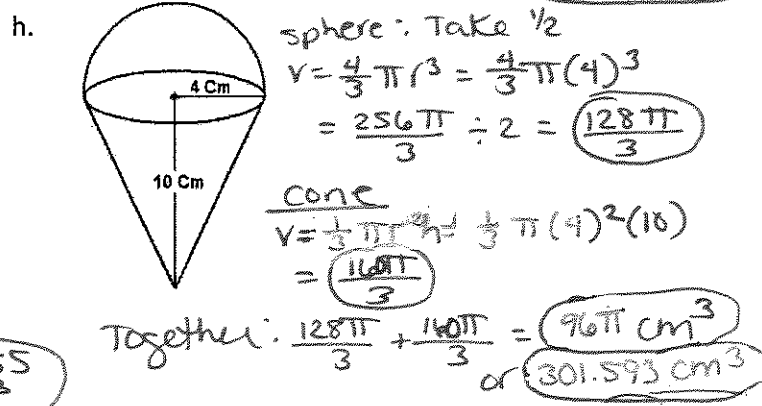 h.
sphere: Take 1/2
4 Cm
V = 4/3 π r³ = 4/3 π(4)³
= 256π/3 ÷ 2 = 128π/3
10 Cm
cone
V = 1/3 πr²h = 1/3 π(4)²(10)
= 160π/3
Together: 128π/3 + 160π/3 = 96π cm³
or 301.593 cm³